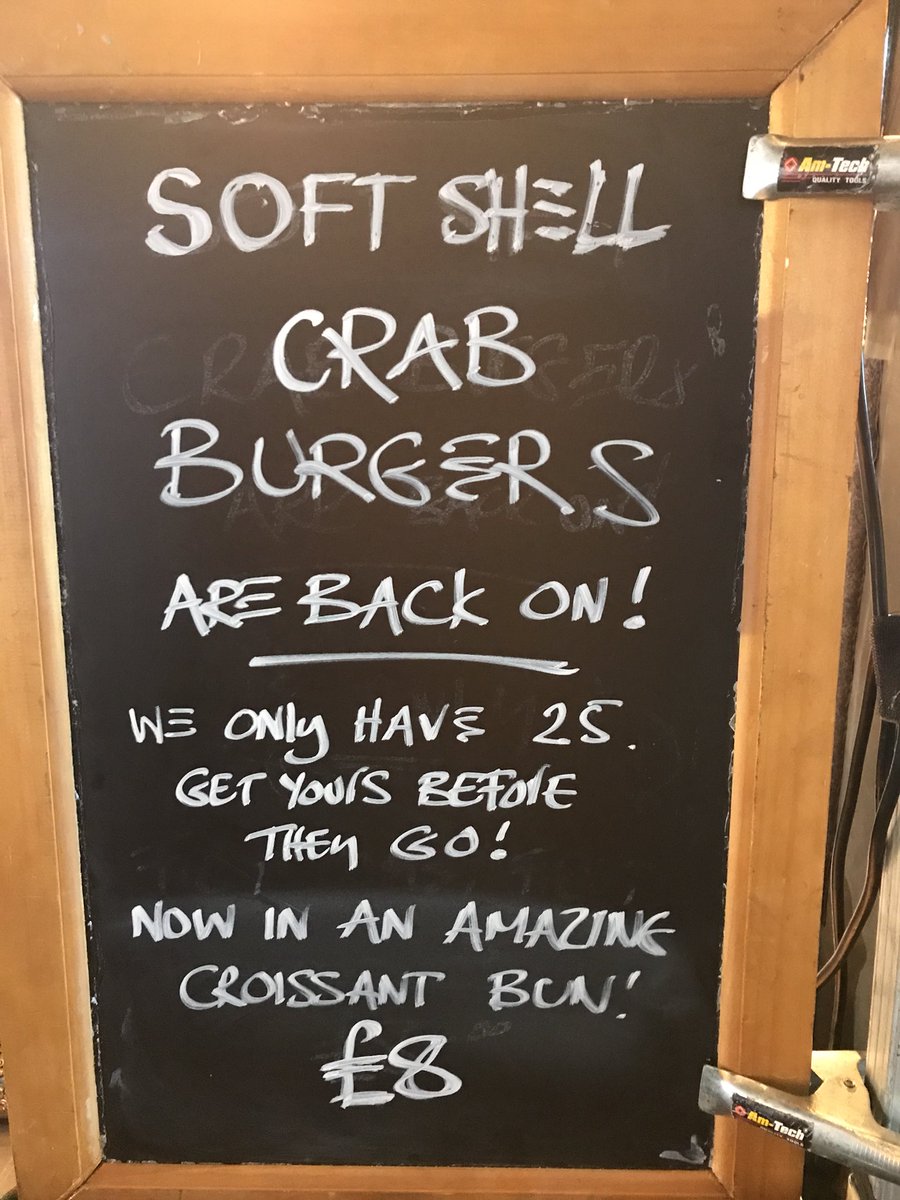 SOFT SHELL
CRAB
BURGERS
ARE BACK ON!
WE ONLY HAVE 25.
GET YOURS BEFORE
THEY GO!
NOW IN AN AMAZING
CROISSANT BUN!
£8
Am-Tech
QUALITY TOOLS
Am-Tech